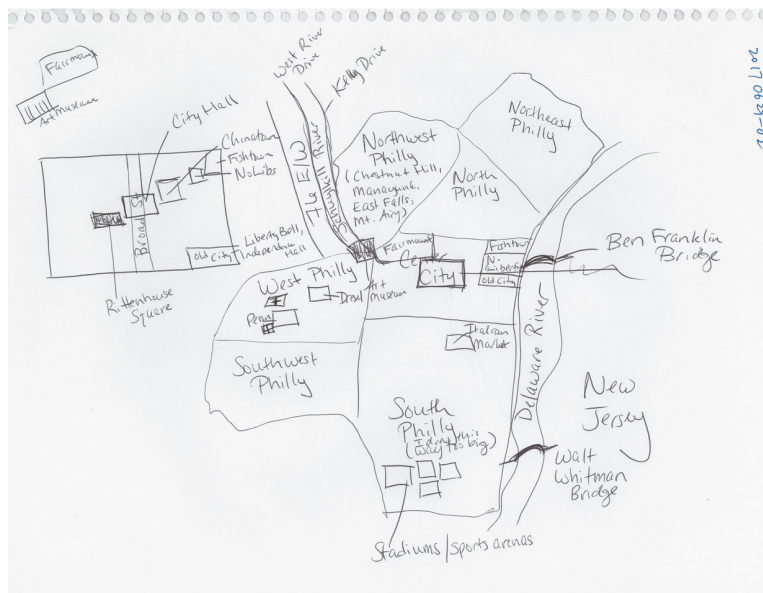 Fairmount
Art Museum
City Hall
Chinatown
Fishtown
NoLibs
Broad St
Old City
Liberty Bell,
Independence
Hall
Rittenhouse
Square
West River
Drive
Kelly Drive
76 E/W
Schuylkill River
Northwest
Philly
(Chestnut Hill,
Manayunk,
East Falls,
Mt. Airy)
North
Philly
Northeast
Philly
Fairmount
Center
City
Fishtown
N.
Liberties
Old City
Ben Franklin
Bridge
West Philly
Drexel
Art
Museum
Penn
Southwest
Philly
Italian
Market
Delaware River
New
Jersey
South
Philly
(I drew this
way too big)
Walt
Whitman
Bridge
Stadiums/sports arenas